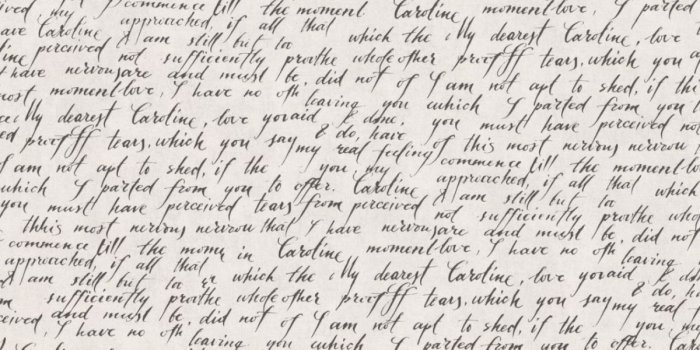 ived my commence till the moment Caroline moment-love, I parted
approached, if all that
ave Caroline I am still but to which the My dearest Caroline, love
line perceived not sufficiently prorthe whole other proof ff tears, which you a
have nervousare and must be, did not of I am not apt to shed, if thi
most moment-love, I have no oth leaving you which I parted from you
ce My dearest Caroline, love yovaid & done. you must have perceived not
ed proof ff tears, which you say & do, have of this most nervous nervow
my real feeling
I am not apt to shed, if the you, my commence till the moment-lo
which I parted from you to offer. Caroline approached, if all that which
you must have perceived tears from perceived I am still but to
not sufficiently prorthe who
thhis most nervous nervow that I have nervousare and must be, did not
commence till the mome in Caroline moment-love, I have no oth leaving
approached, if all that
I am still but to er which the My dearest Caroline, love yovaid & do
sufficiently prorthe whole other proof ff tears, which you say & do, ha
my real
ceived and must be, did not of I am not apt to shed, if the you, my
I have no oth leaving you which I parted from you to offer. Ca